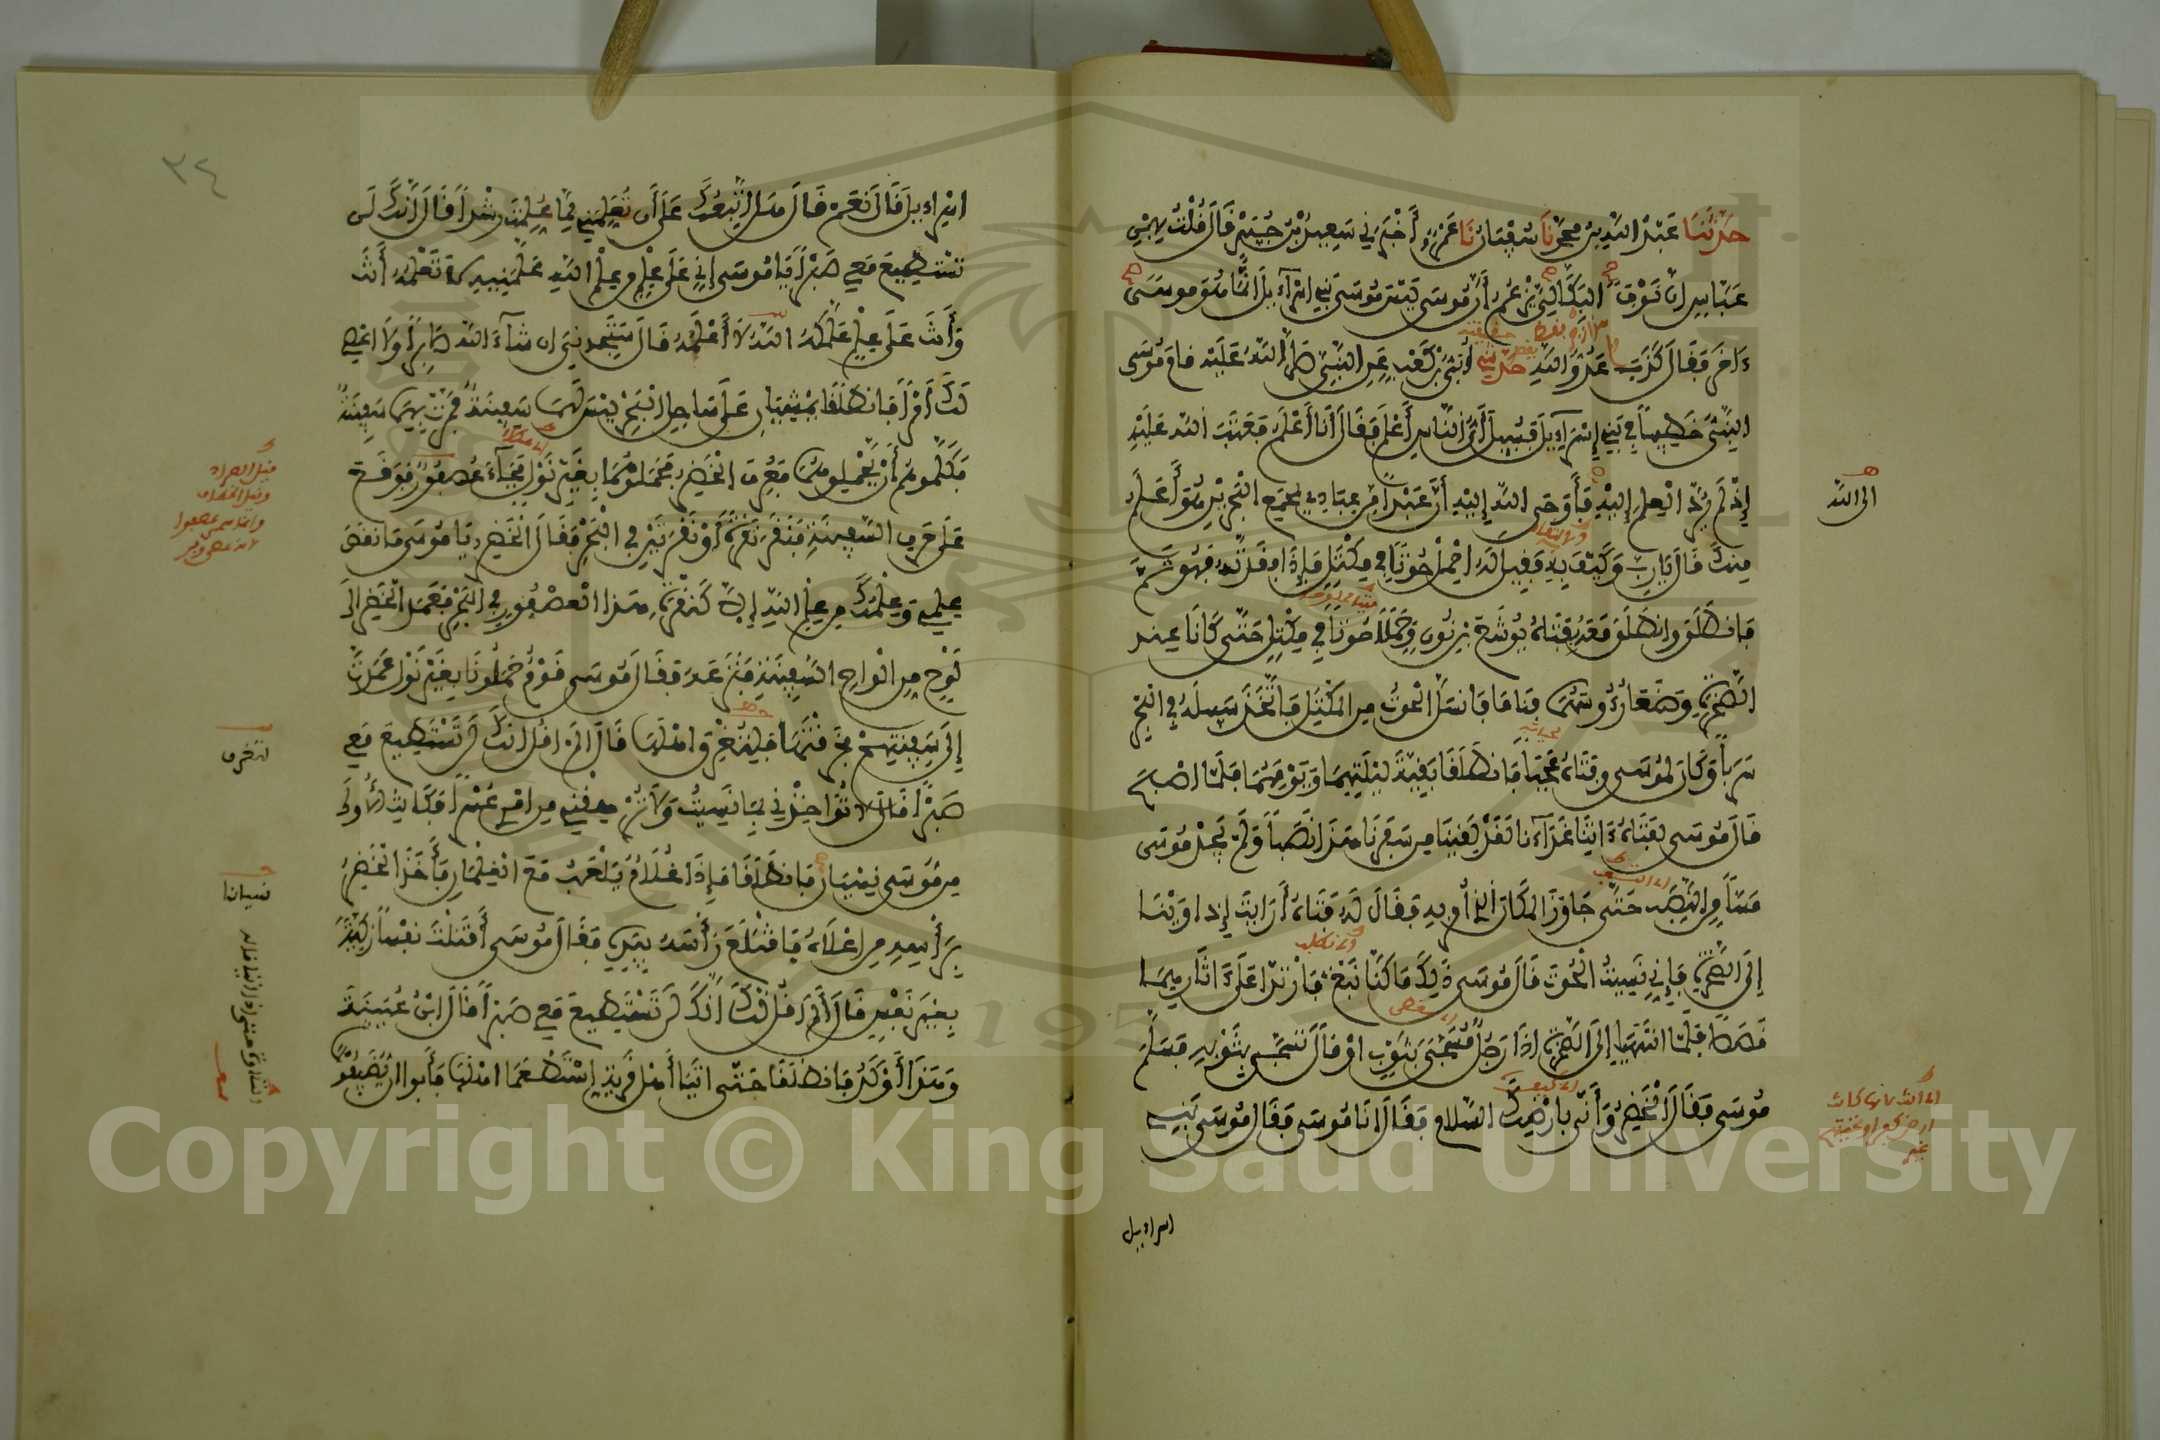 حدثنا عبد الله بن محمد نا سفيان نا عمرو أخبرني سعيد بن جبير قال قلت لابن
عباس ان نوفا البكالي يزعم أن موسى ليس موسى بني اسرآءيل انما هو موسى
ءاخر فقال كذب عدو الله حدثني أبي بن كعب عن النبي صلى الله عليه قام موسى
النبي خطيبا في بني إسرآءيل فسيل أي الناس أعلم فقال أنا أعلم فعتب الله عليه
إذ لم يرد العلم إليه فأوحى الله إليه أن عبدا من عبادي بمجمع البحرين هو أعلم
منك قال يارب وكيف به فقيل له احمل حوتا في مكتل فإذا فقدته فهو ثم
فانطلق وانطلق معه بفتاه يوشع بن نون وحملا حوتا في مكتل حتى كانا عند
الصخرة وضعا رءوسهما فناما فانسل الحوت من المكتل فاتخذ سبيله في البحر
سربا وكان لموسى وفتاه عجبا فانطلقا بقية ليلتهما ويومهما فلما اصبح
قال موسى لفتاه ءاتنا غدآءنا لقد لقينا من سفرنا هذا نصبا ولم يجد موسى
مسا من النصب حتى جاوز المكان الذي أمر به فقال له فتاه أرايت إذ اوينا
إلى الصخرة فإني نسيت الحوت قال موسى ذلك ما كنا نبغ فارتدا على ءاثارهما
قصصا فلما انتهيا إلى الصخرة إذا رجل مسجى بثوب او قال تسجى بثوبه فسلم
موسى فقال الخضر وأنى بارضك السلام فقال انا موسى فقال موسى بني
اسراءيل
الى الله
اسراءيل قال نعم قال هل اتبعك على أن تعلمني مما علمت رشدا قال انك لن
تستطيع معي صبرا يا موسى إني على علم من علم الله علمنيه لا تعلمه أنت
وأنت على علم علمكه الله لا أعلمه قال ستجدني ان شآء الله صابرا ولا اعصي
لك أمرا فانطلقا يمشيان على ساحل البحر ليس لهما سفينة فمرت بهما سفينة
فكلموهم أن يحملوهما فعرف الخضر فحملوهما بغير نول فجآء عصفور فوقع
على حرف السفينة فنقر نقرة أو نقرتين في البحر فقال الخضر يا موسى ما نقص
علمي وعلمك من علم الله إلا كنقرة هذا العصفور في البحر فعمد الخضر الى
لوح من الواح السفينة فنزعه فقال موسى قوم حملونا بغير نول عمدت
إلى سفينتهم فخرقتها ليغرق اهلها قال الم اقل انك لن تستطيع معي
صبرا قال لا تؤاخذني بما نسيت ولا ترهقني من امري عسرا فكانت الأولى
من موسى نسيان فانطلقا فإذا غلام يلعب مع الغلمان فأخذ الخضر
برأسه من اعلاه فاقتلع رأسه بيده فقال موسى أقتلت نفسا زكية
بغير نفس قال ألم اقل لك انك لن تستطيع معي صبرا قال ابن عيينة
وهذا أوكد فانطلقا حتى اتيا أهل قرية إستطعما اهلها فأبوا ان يضيفو
لتغرق
نسيانا
٣٤